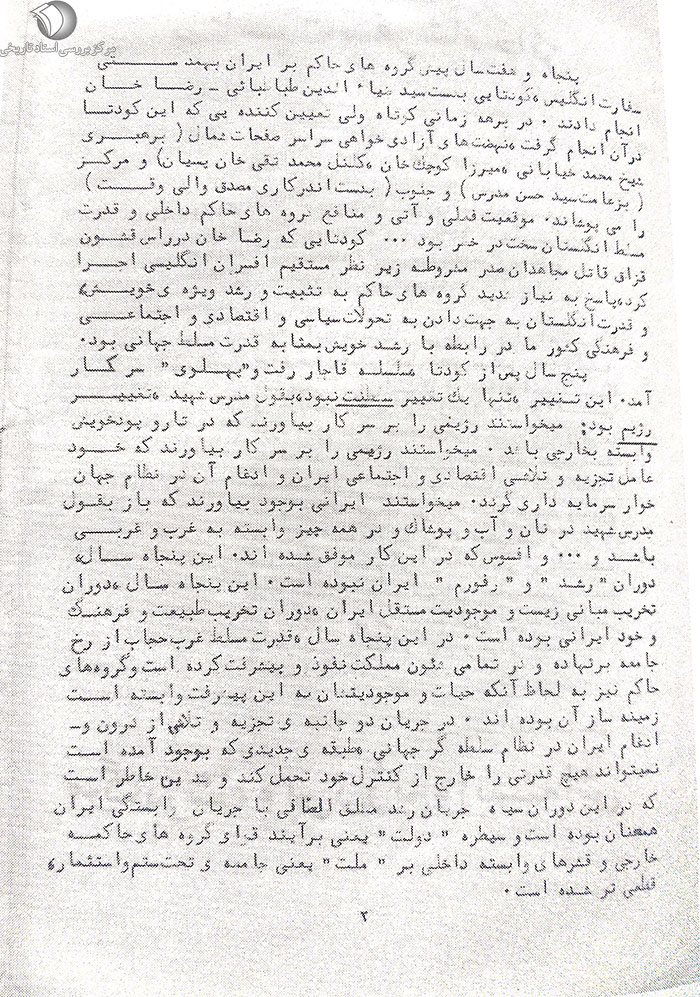 مرکز بررسی اسناد تاریخی
پنجاه و هفت سال پیش گروه های حاکم بر ایران بهمدستی
سفارت انگلیس ، کودتایی بدست سید ضیاء الدین طباطبائی ـ رضا خان
انجام دادند . در برهه زمانی کوتاه ولی تعیین کننده یی که این کودتا
در آن انجام گرفت ، نهضت های آزادی خواهی سراسر صفحات شمال ( برهبری
شیخ محمد خیابانی ، میرزا کوچک خان ، کلنل محمد تقی خان پسیان) و مرکز
( بزعامت سید حسن مدرس ) و جنوب ( بدست اندرکاری مصدق والی وقت )
را می پوشاند. موقعیت فعلی و آتی و منافع گروه های حاکم داخلی و قدرت
مسلط انگلستان سخت در خطر بود ... کودتایی که رضا خان در راس قشون
قزاق قاتل مجاهدان صدر مشروطه زیر نظر مستقیم افسران انگلیسی اجرا
کرد، پاسخ به نیاز شدید گروه های حاکم به تثبیت و رشد ویژه ی خویش،
و قدرت انگلستان به جهت دادن به تحولات سیاسی و اقتصادی و اجتماعی
و فرهنگی کشور ما در رابطه با رشد خویش بمثابه قدرت مسلط جهانی بود.
پنج سال پس از کودتا ، سلسله قاجار رفت و "پهلوی" سر کار
آمد. این تغییر ، تنها یک تغییر سلطنت نبود، بقول مدرس شهید ، تغییر
رژیم بود: میخواستند رژیمی را بر سر کار بیاورند که در تار و پود خویش
وابسته بخارجی باشد . میخواستند رژیمی را بر سر کار بیاورند که خود
عامل تجزیه و تلاشی اقتصادی و اجتماعی ایران و ادغام آن در نظام جهان
خوار سرمایه داری گردد. میخواستند ایرانی بوجود بیاورند که باز بقول
مدرس شهید در نان و آب و پوشاک و در همه چیز وابسته به غرب و غربی
باشد و ... و افسوس که در این کار موفق شده اند. این پنجاه سال،
دوران " رشد " و " رفورم " ایران نبوده است . این پنجاه سال ، دوران
تخریب مبانی زیست و موجودیت مستقل ایران ، دوران تخریب طبیعت و فرهنگ
و خود ایرانی بوده است . در این پنجاه سال ، قدرت مسلط غرب حجاب از رخ
جامعه برنهاده و در تمامی شئون مملکت نفوذ و پیشرفت کرده است و گروه های
حاکم نیز به لحاظ آنکه حیات و موجودیتشان به این پیشرفت وابسته است
زمینه ساز آن بوده اند . در جریان دو جانبه ی تجزیه و تلاشی از درون و ـ
ادغام ایران در نظام سلطه گر جهانی ، طبقه ی جدیدی که بوجود آمده است
نمیتواند هیچ قدرتی را خارج از کنترل خود تحمل کند و بدین خاطر است
که در این دوران سیاه جریان رشد مطلق العنانی با جریان وابستگی ایران
همعنان بوده است و سیطره " دولت " یعنی برآیند قوای گروه های حاکمه
خارجی و قشرهای وابسته داخلی بر " ملت " یعنی جامعه ی تحت ستم و استثمار،
قطعی تر شده است .
۳